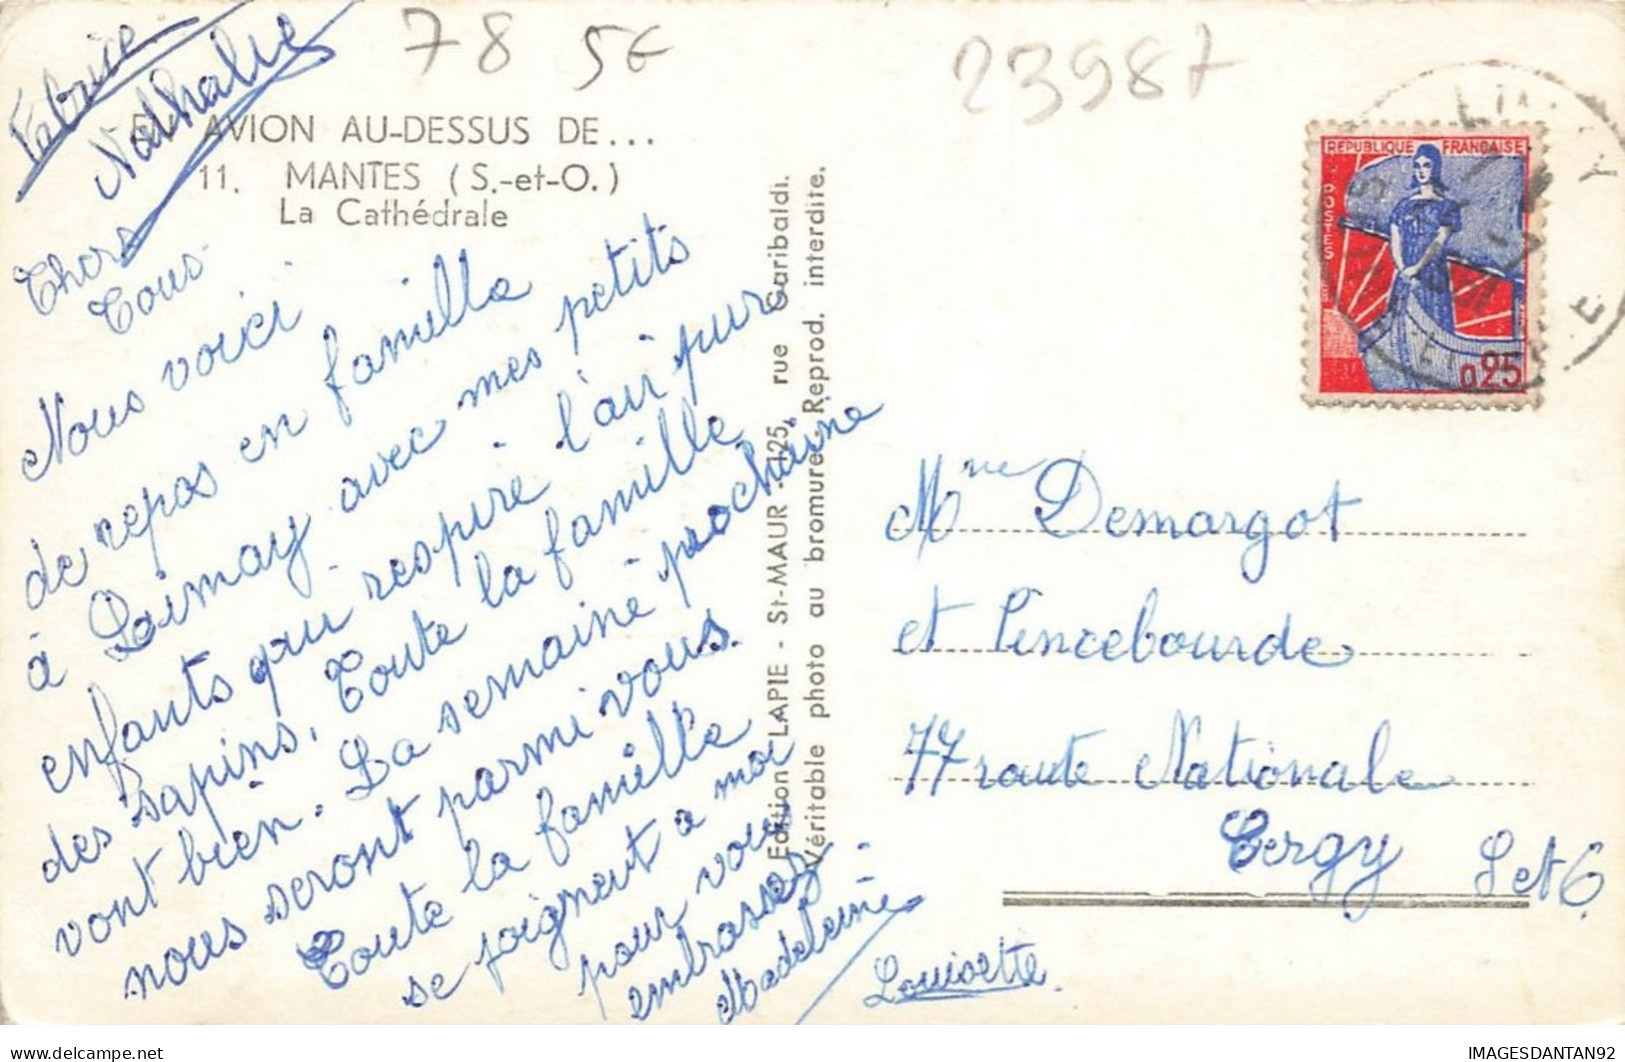 78 5€
23987
Fabrice
Nathalie
EN AVION AU-DESSUS DE...
11. MANTES (S.-et-O.)
La Cathédrale
Chers
Tous
Nous voici
de repos en famille
à Limay avec mes petits
enfants qui respire l'air pur
des sapins. Toute la famille
vont bien. La semaine prochaine
nous seront parmi vous.
Toute la famille
se joignent a moi
pour vous
embrassez
Madeleine
Louisette
Edition LAPIE - St-MAUR. 125, rue Garibaldi.
Véritable photo au bromure. Reprod. interdite.
REPUBLIQUE FRANÇAISE
POSTES
0,25
Mme Demargot
et Pincebourde
77 route Nationale
Cergy S et O
IMAGESDANTAN92